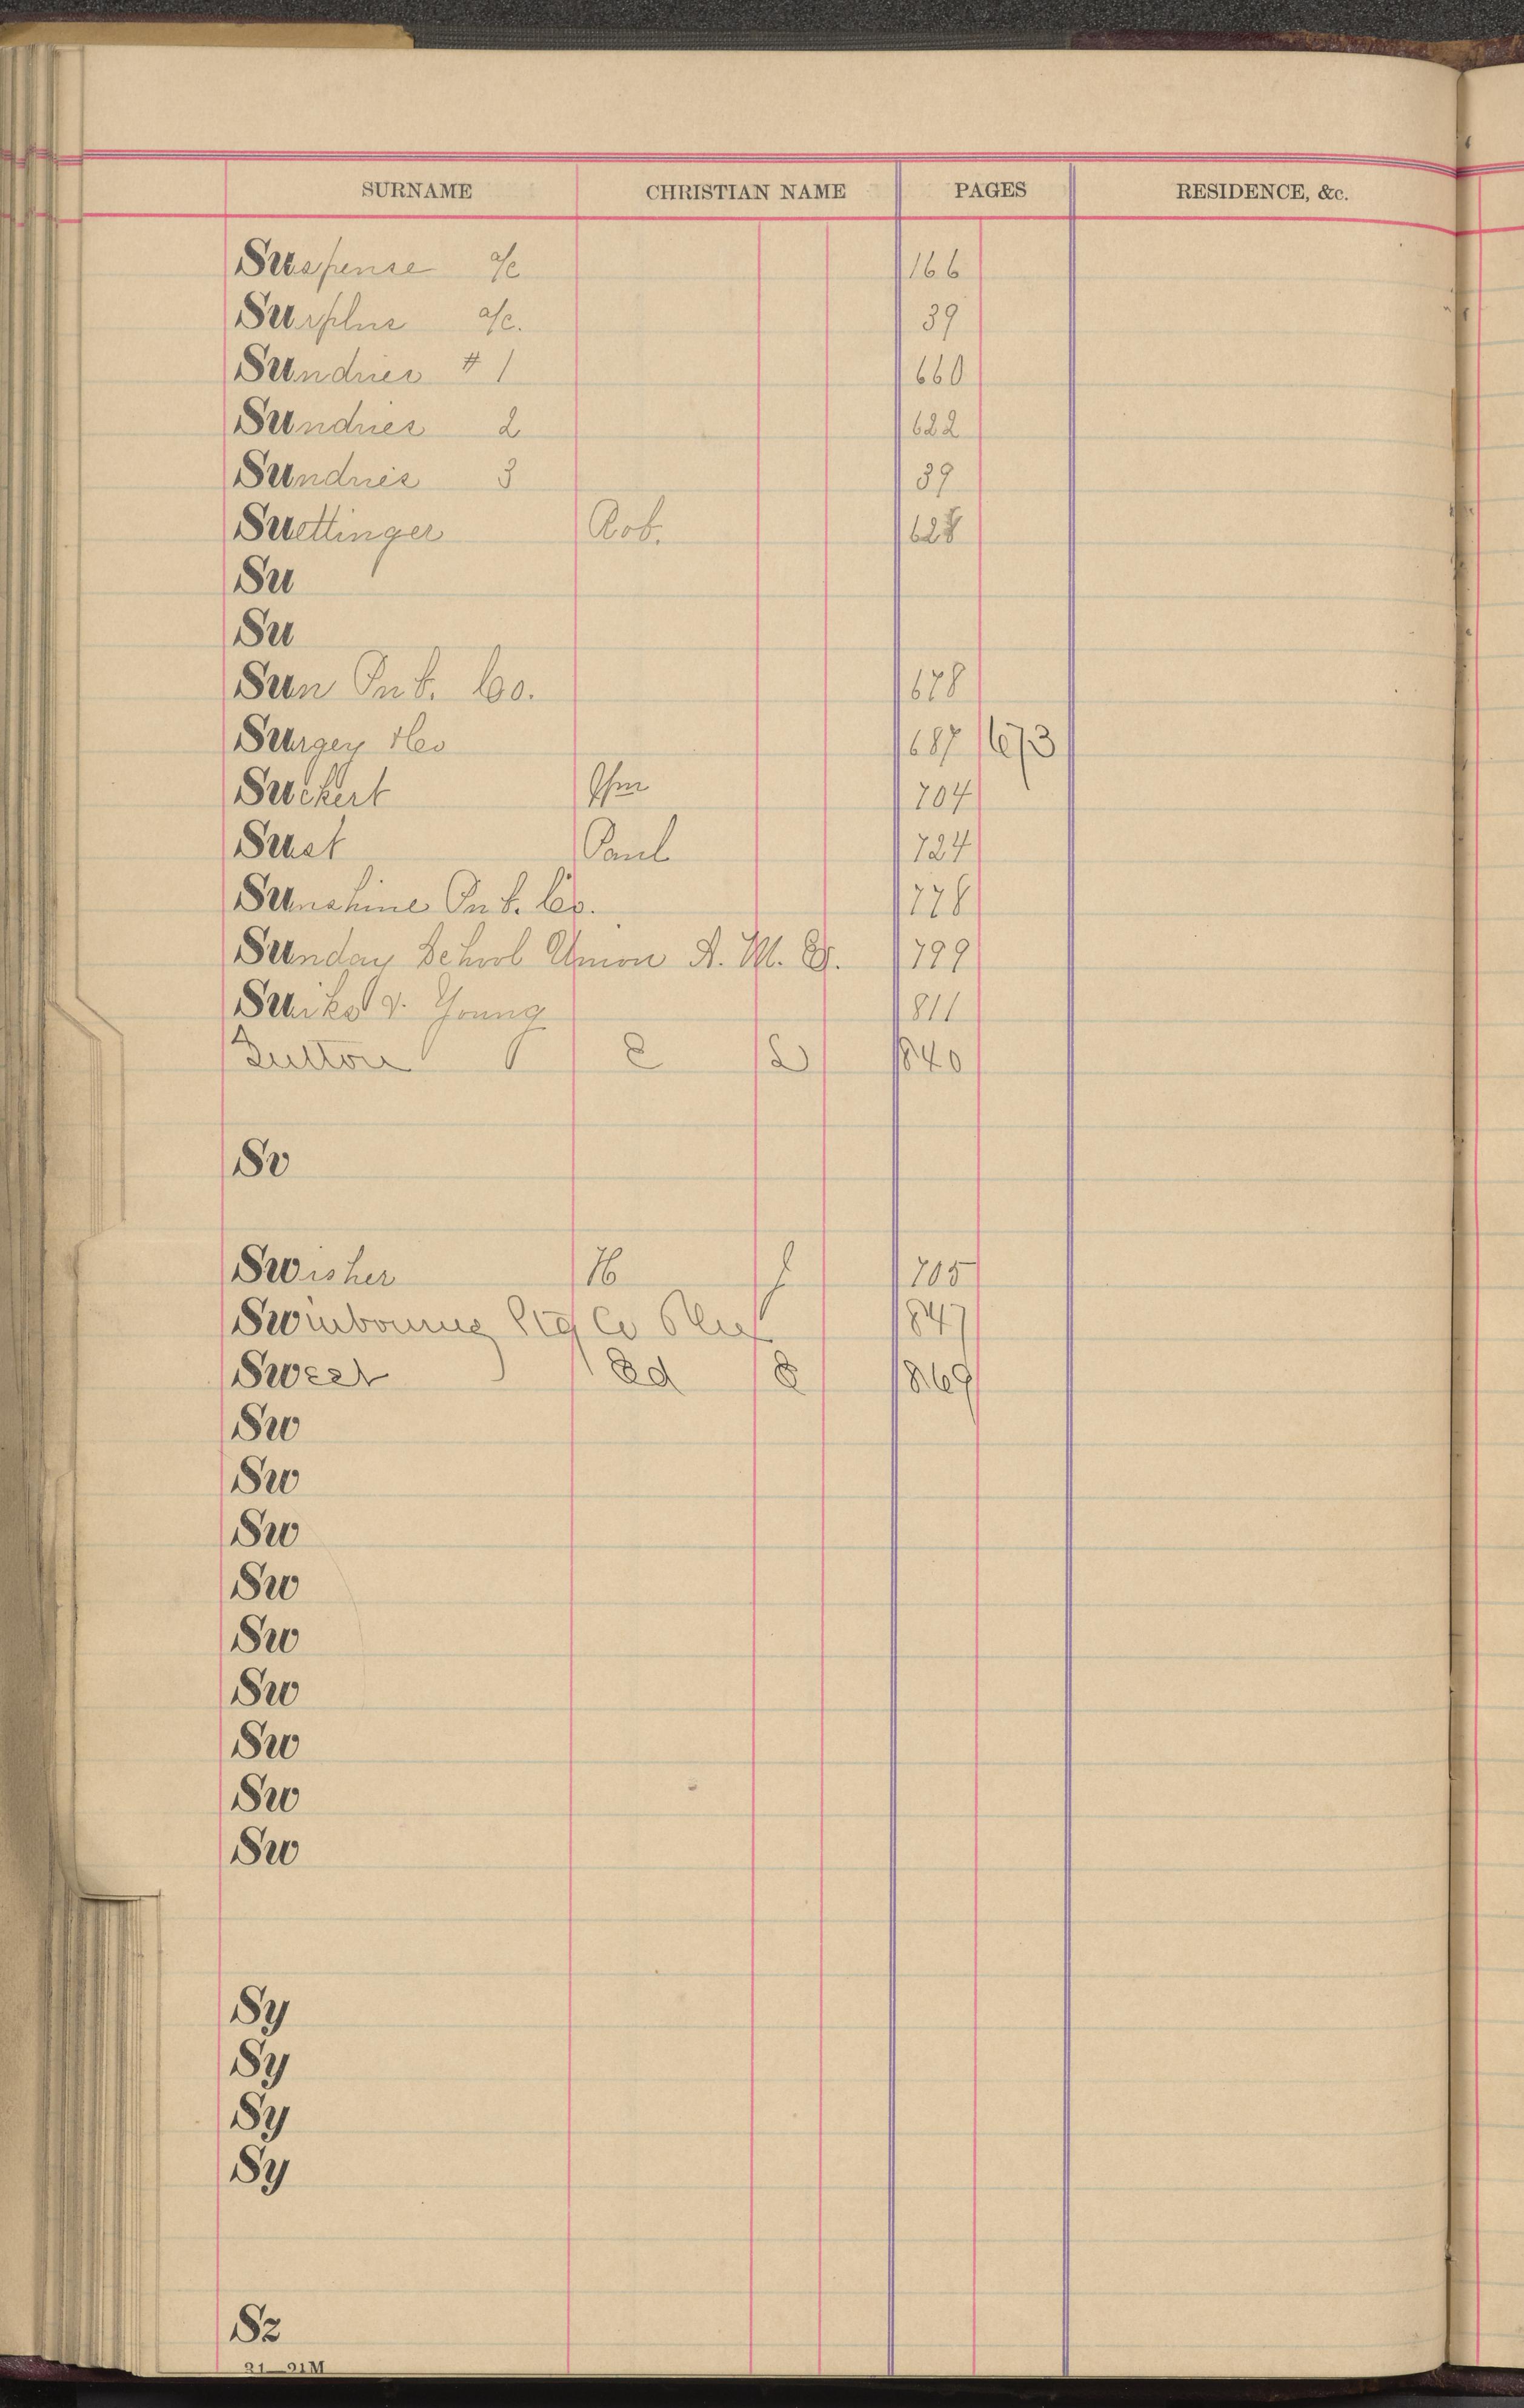 SURNAME CHRISTIAN NAME PAGES RESIDENCE, &c.
Suspense a/c 166
Surplus a/c. 39
Sundries # 1 660
Sundries 2 622
Sundries 3 39
Suettinger Rob. 628
Su
Su
Sun Pub. Co. 678
Surgey 687 673
Suckert Wm 704
Sust Paul 724
Sunshine Pub. Co. 778
Sunday School Union A. M. E. 799
& Young 811
Sutton E L 840
Sv
Swisher H J 705
Swinbourne Ptg Co 847
Sweet Ed E 869
Sw
Sw
Sw
Sw
Sw
Sw
Sw
Sw
Sw
Sy
Sy
Sy
Sy
Sz
21—21M